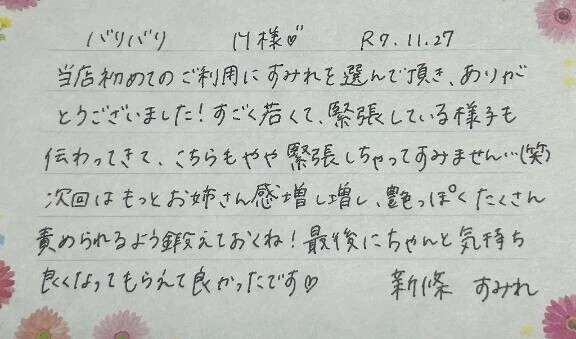 バリバリ　M様♡　R7.11.27
当店初めてのご利用にすみれを選んで頂き、ありが
とうございました！すごく若くて、緊張している様子も
伝わってきて、こちらもやや緊張しちゃってすみません…(笑)
次回はもっとお姉さん感増し増し、艶っぽくたくさん
責められるよう鍛えておくね！最後にちゃんと気持ち
良くなってもらえて良かったです♡　新條 すみれ